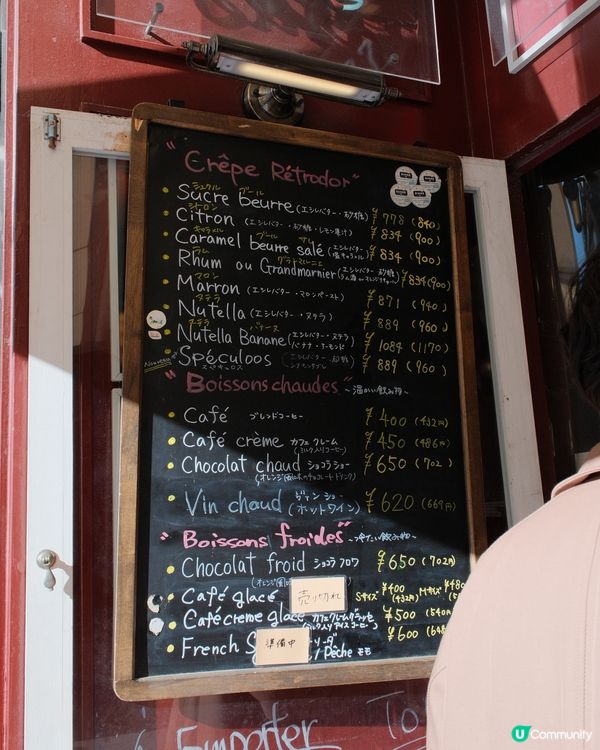 "Crêpe Rétrodor"
シュクル ブール
Sucre Beurre (エシレバター・お砂糖) ¥778 (840)
シトロン
Citron (エシレバター・砂糖・レモン果汁) ¥834 (900)
キャラメル ブール サレ
Caramel beurre salé (エシレバター・塩キャラメル) ¥834 (900)
ラム グランマルニエ
Rhum ou Grandmarnier (エシレバター・お砂糖 ラム酒orオレンジリキュール) ¥834 (900)
マロン
Marron (エシレバター・マロンペースト) ¥871 (940)
Nutella (エシレバター・ヌテラ) ¥889 (960)
ヌテラ バナーヌ
Nutella Banane (エシレバター・ヌテラ バナナ・アーモンド) ¥1084 (1170)
Nouveau
Spéculoos ¥889 (960)
スペキュロス
"Boissons chaudes" ~温かい飲み物~
Café ブレンドコーヒー ¥400 (432円)
Café crème カフェクレーム (ミルク入りコーヒー) ¥450 (486円)
Chocolat chaud ショコラショー ¥650 (702)
Vin chaud ヴァンショー (ホットワイン) ¥620 (669円)
"Boissons froides" ~冷たい飲み物~
Chocolat froid ショコラフロワ ¥650 (702円)
Café glacé 売り切れ Sサイズ ¥400 (432円) Mサイズ ¥480
Café creme glacé カフェクレームグラッセ (ミルク入りアイスコーヒー) ¥500 (540円
French S 準備中 / Pêche モモ ¥600 (648
Emporter To
U Community